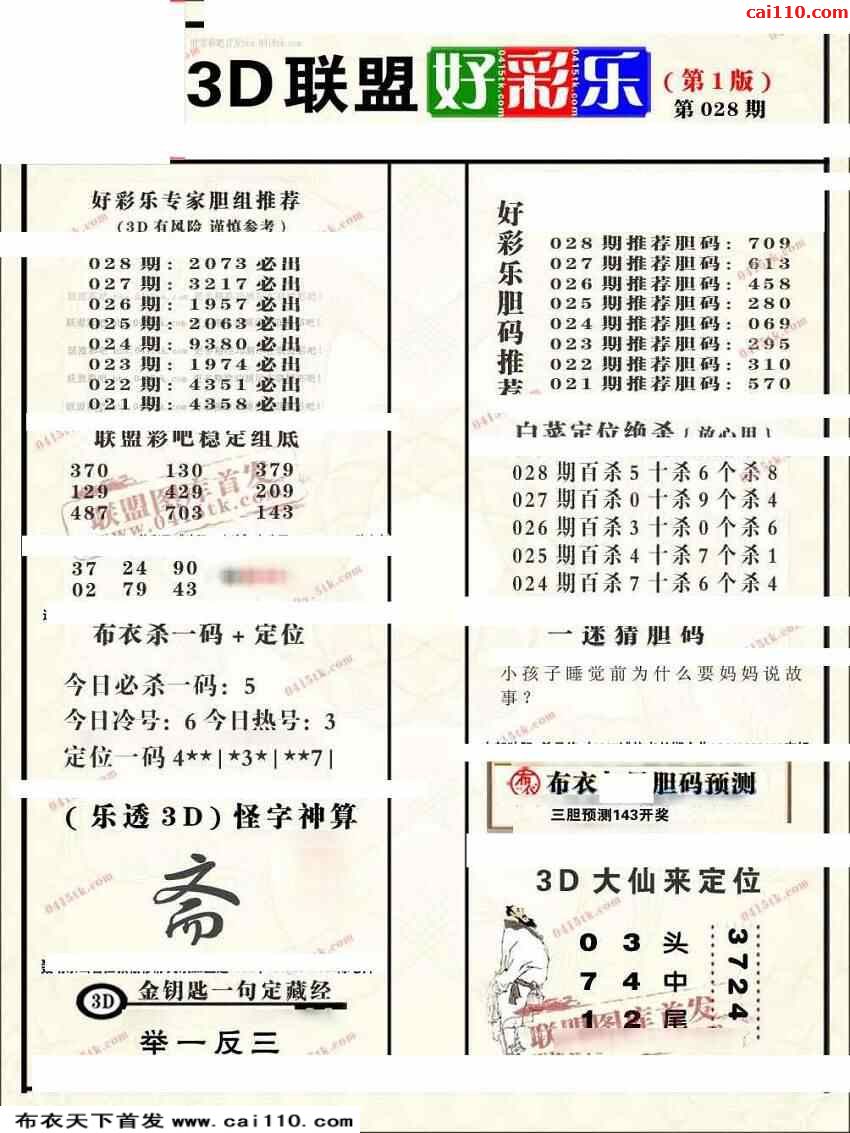 cai110.com
3D联盟好彩乐(第1版)
0415tk.com 0415tk.com 0415tk.com
第028期
好彩乐专家胆组推荐
(3D有风险 谨慎参考)
028期:2073必出
027期:3217必出
026期:1957必出
025期:2063必出
024期:9380必出
023期:1974必出
022期:4351必出
021期:4358必出
联盟彩吧稳定组底
370 130 379
129 429 209
487 703 143
联盟图库首发
www.0415tk.com
37 24 90
02 79 43
布衣杀一码+定位
今日必杀一码:5
今日冷号:6 今日热号:3
定位一码4**|*3*|**7|
(乐透3D)怪字神算
斋
3D 金钥匙一句定藏经
举一反三
好彩乐胆码推荐
028期推荐胆码:709
027期推荐胆码:613
026期推荐胆码:458
025期推荐胆码:280
024期推荐胆码:069
023期推荐胆码:295
022期推荐胆码:310
021期推荐胆码:570
白菜定位绝杀(放心用)
028期百杀5十杀6个杀8
027期百杀0十杀9个杀4
026期百杀3十杀0个杀6
025期百杀4十杀7个杀1
024期百杀7十杀6个杀4
一迷猜胆码
小孩子睡觉前为什么要妈妈说故
事?
布衣 布衣 胆码预测
三胆预测143开奖
3D大仙来定位
0 3 头
7 4 中
1 2 尾
3724
联盟图库首发
0415tk.com
布衣天下首发 www.cai110.com